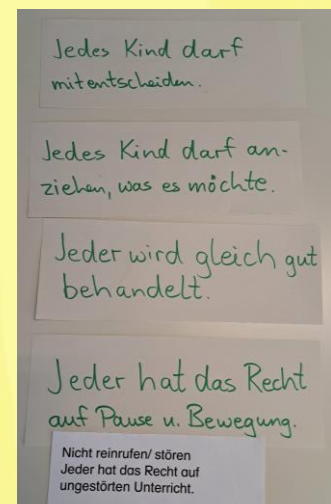 Jedes Kind darf
mitentscheiden.
Jedes Kind darf an-
ziehen, was es möchte.
Jeder wird gleich gut
behandelt.
Jeder hat das Recht
auf Pause u. Bewegung.
Nicht reinrufen/ stören
Jeder hat das Recht auf
ungestörten Unterricht.